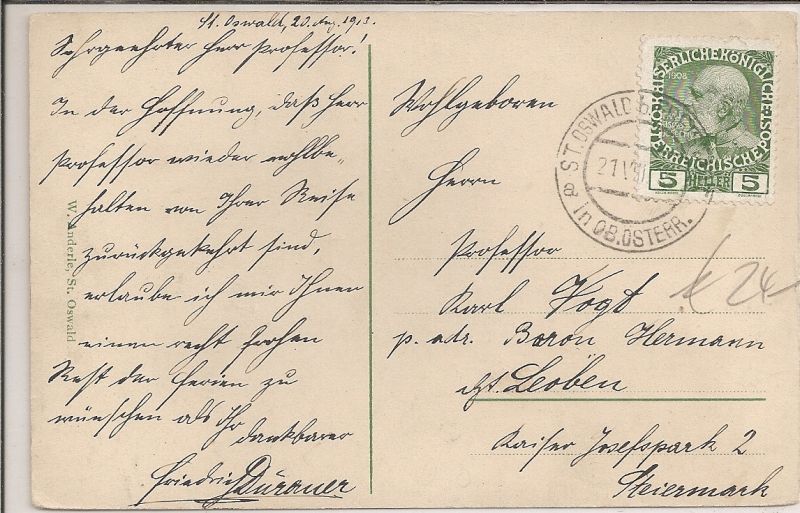 St. Oswald, 20. Aug. 1913.
Sehrgeehrter Herr Professor!
In der Hoffnung, daß Herr
Professor wieder wohlbe-
halten von Ihrer Reise
zurückgekehrt sind,
erlaube ich mir Ihnen
einen recht frohen
Rest der Ferien zu
wünschen als Ihr
dankbarer
Friedrich
W. Anderle, St. Oswald
Wohlgeboren
Herrn
Professor
Karl Vogt
p. adr. Baron Hermann
dzt. Leoben
Kaiser Josefspark 2
Steiermark
KAISERLICHE KÖNIGLICHE ÖSTERREICHISCHE POST
1908
5 HELLER 5
ST. OSWALD
21
a in OB. ÖSTERR.
24-